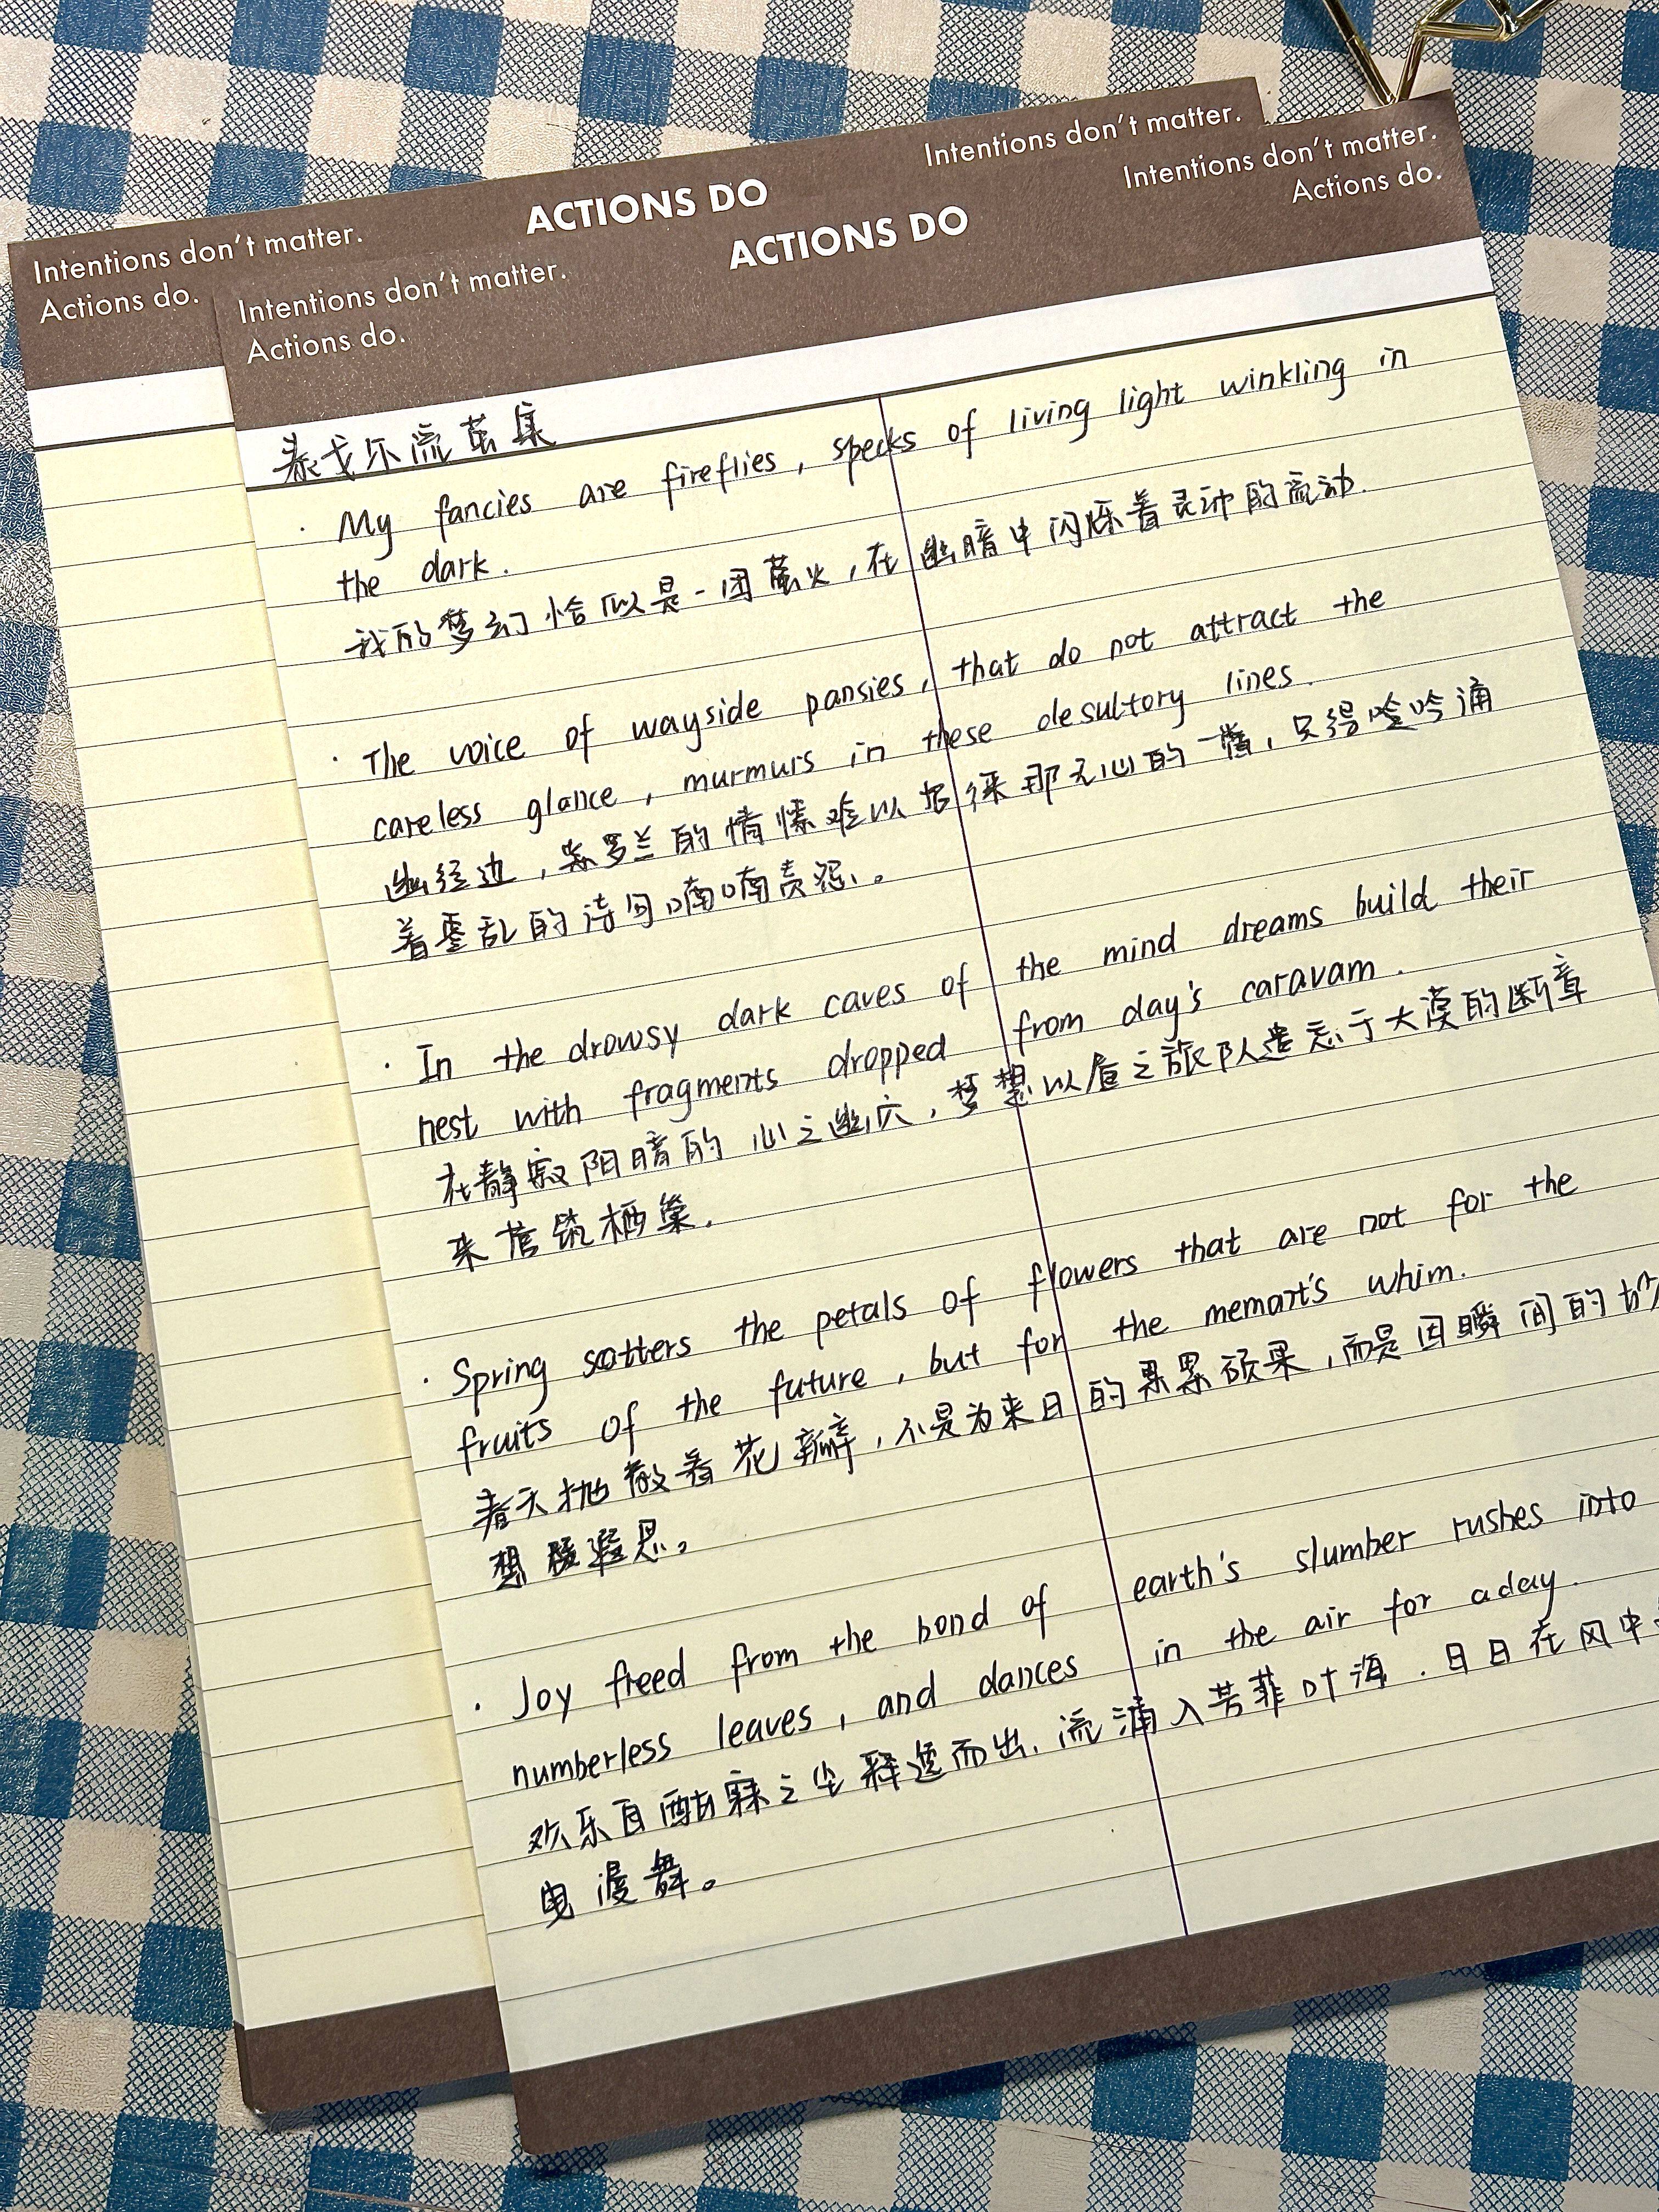 Intentions don't matter.
Actions do.
ACTIONS DO
Intentions don't matter.
Intentions don't matter.
Actions do.
ACTIONS DO
Intentions don't matter.
Actions do.
泰戈尔流萤集
· My fancies are fireflies, specks of living light winkling in
the dark.
我的梦幻恰似是一团萤火,在幽暗中闪烁着灵动的流动.
· The voice of wayside pansies, that do not attract the
careless glance, murmurs in these desultory lines.
幽径边,紫罗兰的情愫难以招徕那无心的一瞥,只得吟诵
着零乱的诗句喃喃责怨。
· In the drowsy dark caves of the mind dreams build their
nest with fragments dropped from day's caravam.
在静寂阴暗的心之幽穴,梦想以 之旅队遗忘于大漠的断章
来 筑栖巢.
· Spring scatters the petals of flowers that are not for the
fruits of the future, but for the memant's whim.
春天抛散着花瓣,不是为来日的累累硕果,而是因瞬间的
想
· Joy freed from the bond of earth's slumber rushes into
numberless leaves, and dances in the air for a day.
欢乐自酣寐之尘释逸而出.流涌入芳菲叶海.日日在风中
曳漫舞。